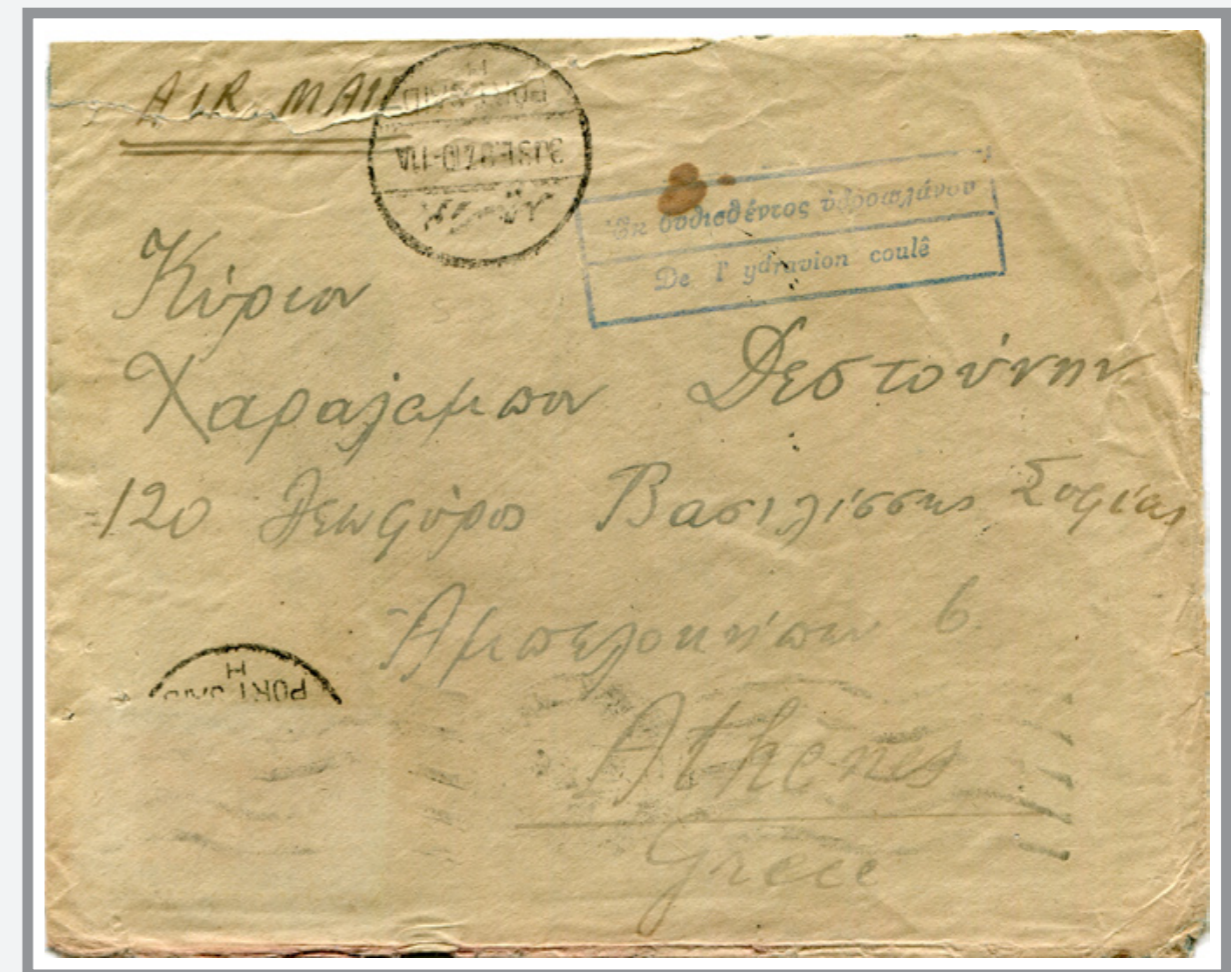 AIR MAIL
H
PORT SAID
10-11A
Ἐκ βυθισθέντος ὑδροπλάνου
De l' ydravion coulê
Κύριον
Χαραλαμπον Δεστούνην
120 Λεωφόρος Βασιλίσσης Σοφίας
Ἀμπελοκήπων 6.
Athenes
Grece
H
PORT SAID